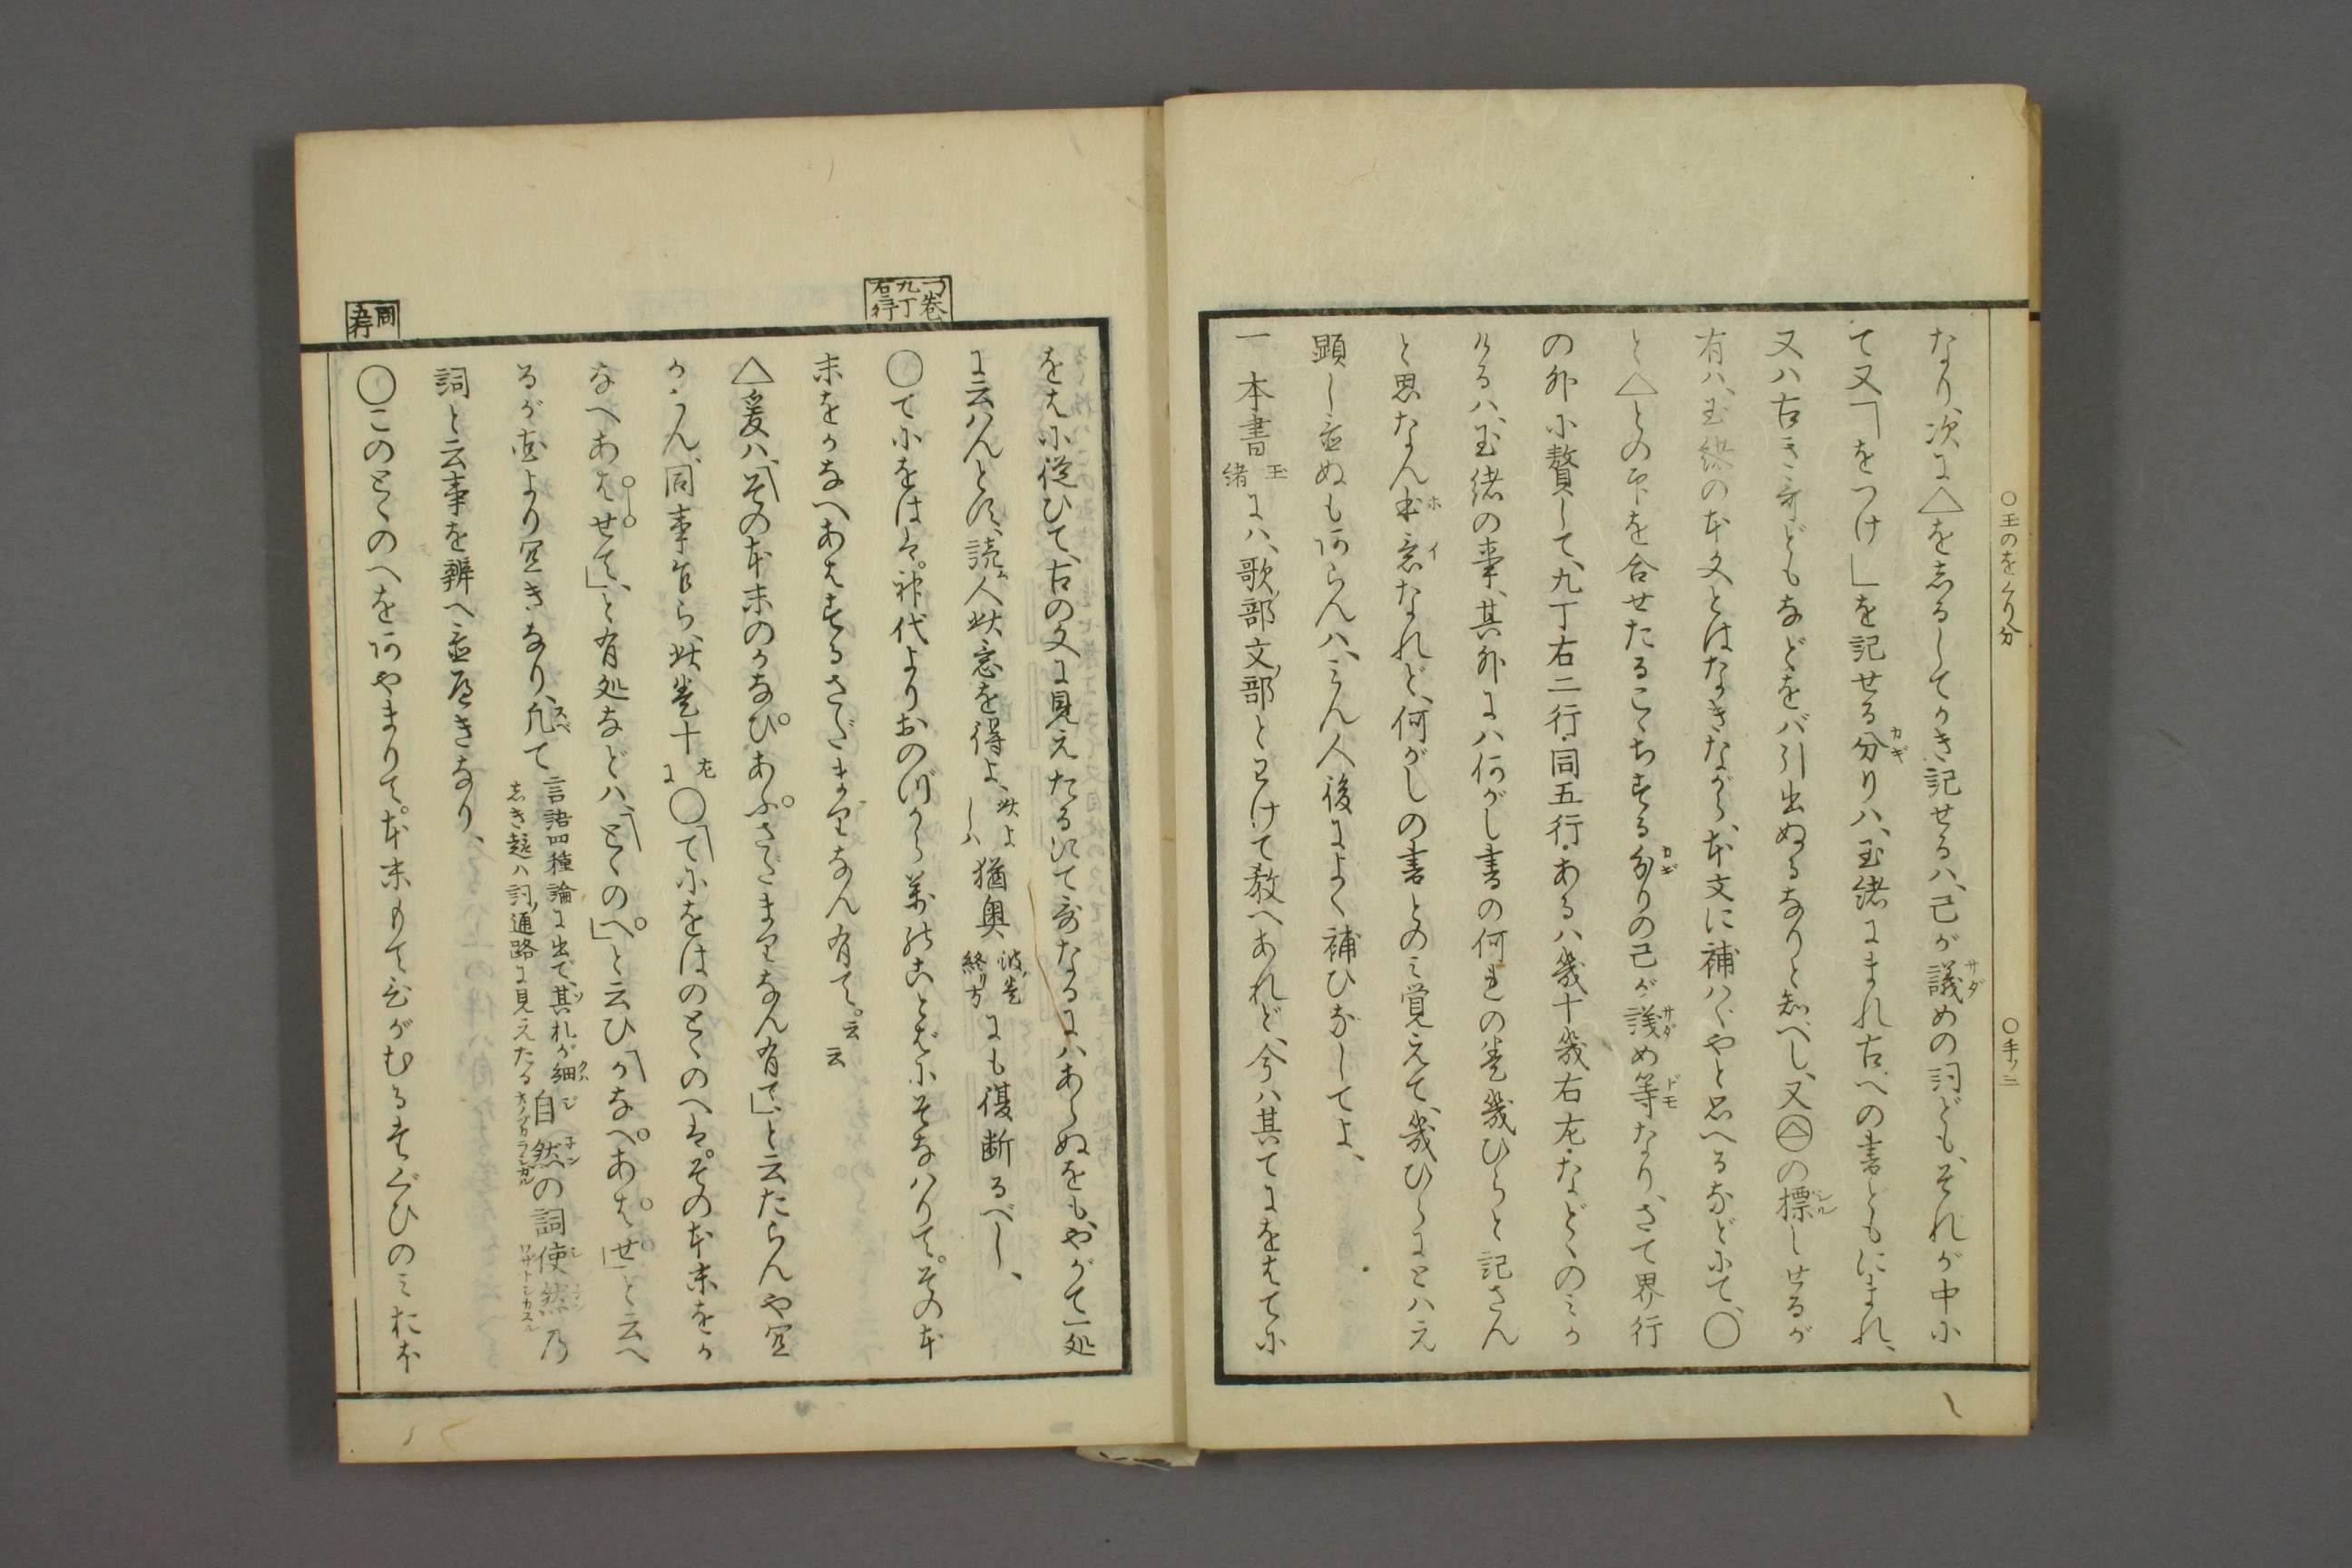 ○玉のをくり分
○手ノ三
なり、次に△を志るしてかき記せるハ、己が議めの詞ども、それが中に
て又「をつけ」を記せる分りハ、玉緒にまれ古への書ともにまれ、
又ハ古き哥どもなどをバ引出ぬるなりと知べし、又の標しせるが
有ハ、玉緒の本文とはなきながら、本文に補ハゞやと思へるなどにて、○
と△との印を合せたるこゝちする分りの己が議め等なり、さて界行
の外に贅して、九丁右二行・同五行・あるハ幾十幾右左・などゝのミか
けるハ、玉緒の事、其外にハ何がし書の何の巻幾ひらと記さん
と思なん本意なれど、何がしの書とのミ覚えて、幾ひらにとハえ
顕し並ぬもあらんハ、ミん人後によく補ひなしてよ、
一 本書玉緒にハ、歌部文部とわけて教へあれど、今ハ其てにをはてに
をはに従ひて、古の文に見えたるにて哥なるにハあらぬをも、やがて一処
に云ハんとす、読人此意を得よ、此よしハ猶奥彼巻終リ方にも復断るべし、
一巻九丁右二行
○てにをはは。神代よりおのづから万のことばにそなハりて。その本
末をかなへあはするさだまりなん有て。云云
△爰ハ、「その本末のかなひあふさだまりなん有て」、と云たらんや宜
かゝん、同事乍ら、此巻十左に○「てにをはのとゝのへは。その本末をか
なへあはせて」、と有処などハ、「とゝのへ」と云ひ「かなへあはせ」と云へ
るが並より宜きなり、凡て言語四種論に出で、其れが細志き趣ハ詞ノ通路に見えたる自然の詞使然乃
詞と云事を辨へ並べきなり、
同五行
○このとゝのへをあやまりて。本末もてひがむるたぐひのミおほ